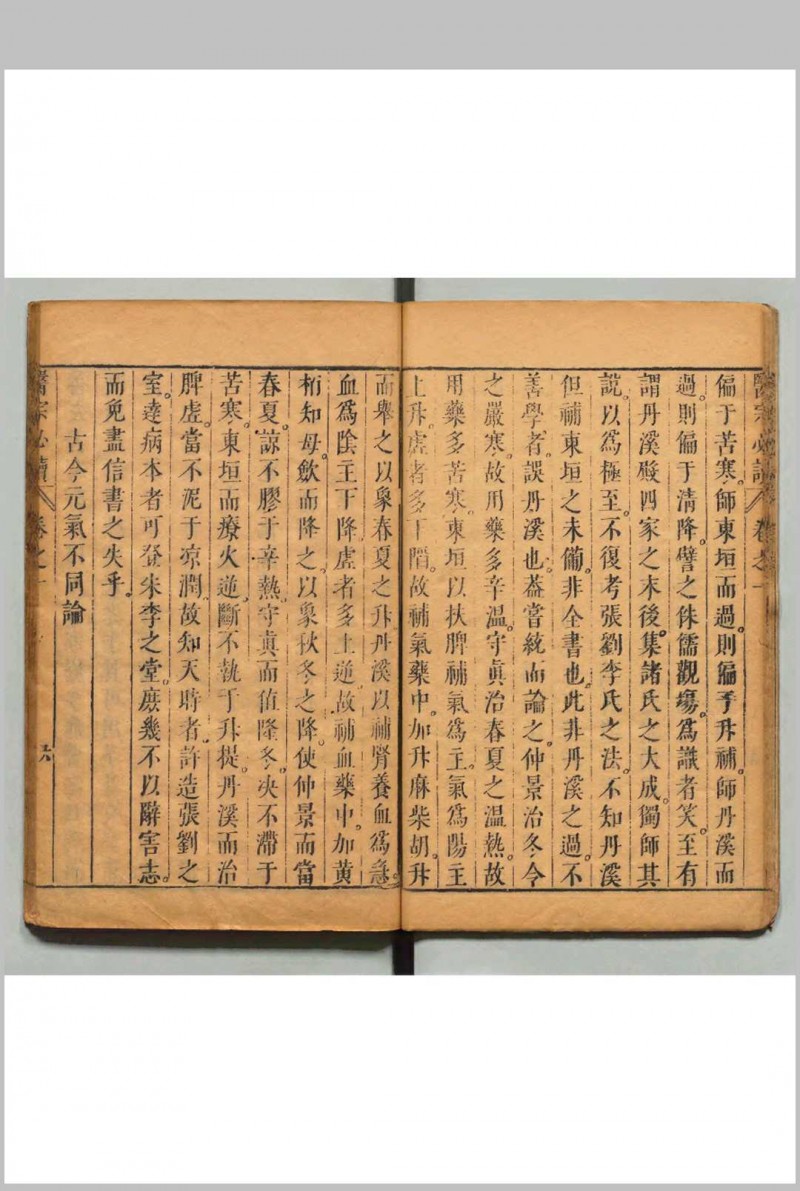 醫宗必讀 卷之一
偏于苦寒。師東垣而過。則偏于升補。師丹溪而
過。則偏于清降。譬之侏儒觀塲。爲識者笑。至有
謂丹溪殿四家之末後。集諸氏之大成。獨師其
說。以爲極至。不復考張劉李氏之法。不知丹溪
但補東垣之未備。非全書也。此非丹溪之過。不
善學者。誤丹溪也。葢嘗統而論之。仲景治冬令
之嚴寒。故用藥多辛溫。守眞治春夏之温熱。故
用藥多苦寒。東垣以扶脾補氣爲主。氣爲陽。主
上升。虛者多下陷。故補氣藥中。加升麻柴胡。升
而舉之。以象春夏之升。丹溪以補腎養血爲急。
血爲陰。主下降。虛者多上逆。故補血藥中。加黃
栢知母。斂而降之。以象秋冬之降。使仲景而當
春夏。諒不膠于辛熱。守眞而值隆冬。决不滯于
苦寒。東垣而療火逆。斷不執于升提。丹溪而治
脾虛。當不泥于凉潤。故知天時者。許造張劉之
室。達病本者。可登朱李之堂。庶幾不以辭害志。
而免盡信書之失乎。
古今元氣不同論
醫宗必讀 卷之一 六